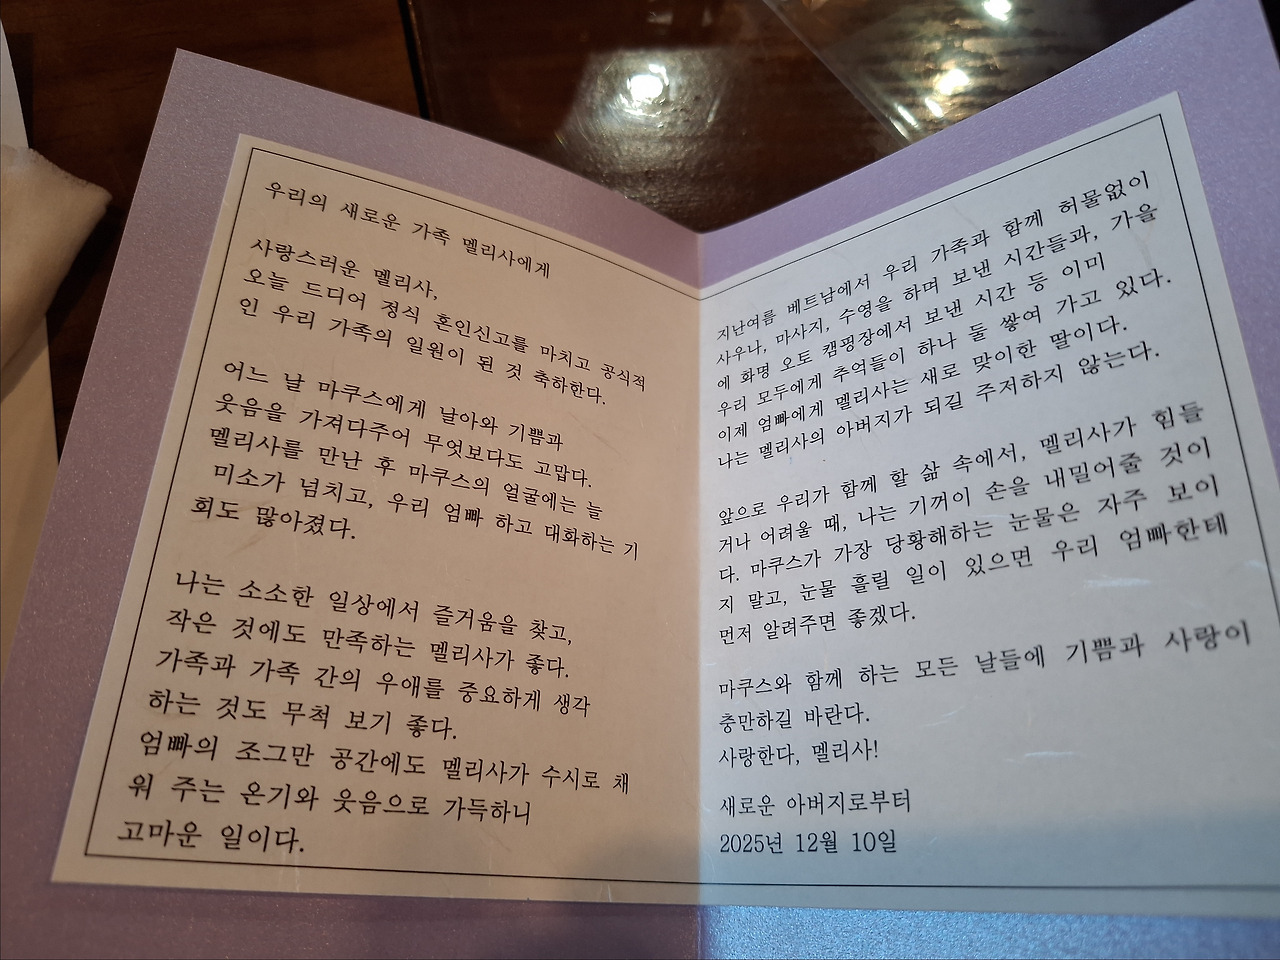 우리의 새로운 가족 멜리사에게
사랑스러운 멜리사,
오늘 드디어 정식 혼인신고를 마치고 공식적
인 우리 가족의 일원이 된 것 축하한다.
어느 날 마쿠스에게 날아와 기쁨과
웃음을 가져다주어 무엇보다도 고맙다.
멜리사를 만난 후 마쿠스의 얼굴에는 늘
미소가 넘치고, 우리 엄빠 하고 대화하는 기
회도 많아졌다.
나는 소소한 일상에서 즐거움을 찾고,
작은 것에도 만족하는 멜리사가 좋다.
가족과 가족 간의 우애를 중요하게 생각
하는 것도 무척 보기 좋다.
엄빠의 조그만 공간에도 멜리사가 수시로 채
워 주는 온기와 웃음으로 가득하니
고마운 일이다.
지난여름 베트남에서 우리 가족과 함께 허물없이
사우나, 마사지, 수영을 하며 보낸 시간들과, 가을
에 화명 오토 캠핑장에서 보낸 시간 등 이미
우리 모두에게 추억들이 하나 둘 쌓여 가고 있다.
이제 엄빠에게 멜리사는 새로 맞이한 딸이다.
나는 멜리사의 아버지가 되길 주저하지 않는다.
앞으로 우리가 함께 할 삶 속에서, 멜리사가 힘들
거나 어려울 때, 나는 기꺼이 손을 내밀어줄 것이
다. 마쿠스가 가장 당황해하는 눈물은 자주 보이
지 말고, 눈물 흘릴 일이 있으면 우리 엄빠한테
먼저 알려주면 좋겠다.
마쿠스와 함께 하는 모든 날들에 기쁨과 사랑이
충만하길 바란다.
사랑한다, 멜리사!
새로운 아버지로부터
2025년 12월 10일